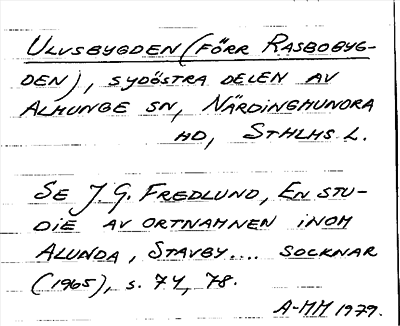 ULVSBYGDEN (FÖRR RASBOBYG-
DEN), SYDÖSTRA DELEN AV
ALMUNGE SN, NÄRDINGHUNDRA
HD, STHLMS L.
SE J G. FREDLUND, EN STU-
DIE AV ORTNAMNEN INOM
ALUNDA, STAVBY.... SOCKNAR
(1965), S. 74, 78.
A-MM 1979.